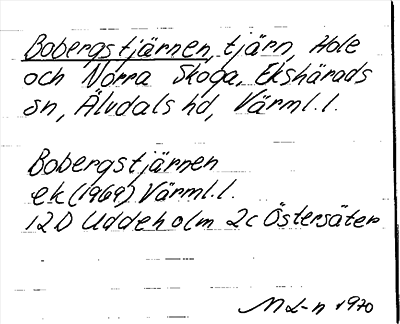 Bobergstjärnen, tjärn, Hole
och Norra Skoga, Ekshärads
sn, Älvdals hd, Värml. l.
Bobergstjärnen
ek (1969) Värml. l.
12D Uddeholm 2c Östersäter
ML-n 1970